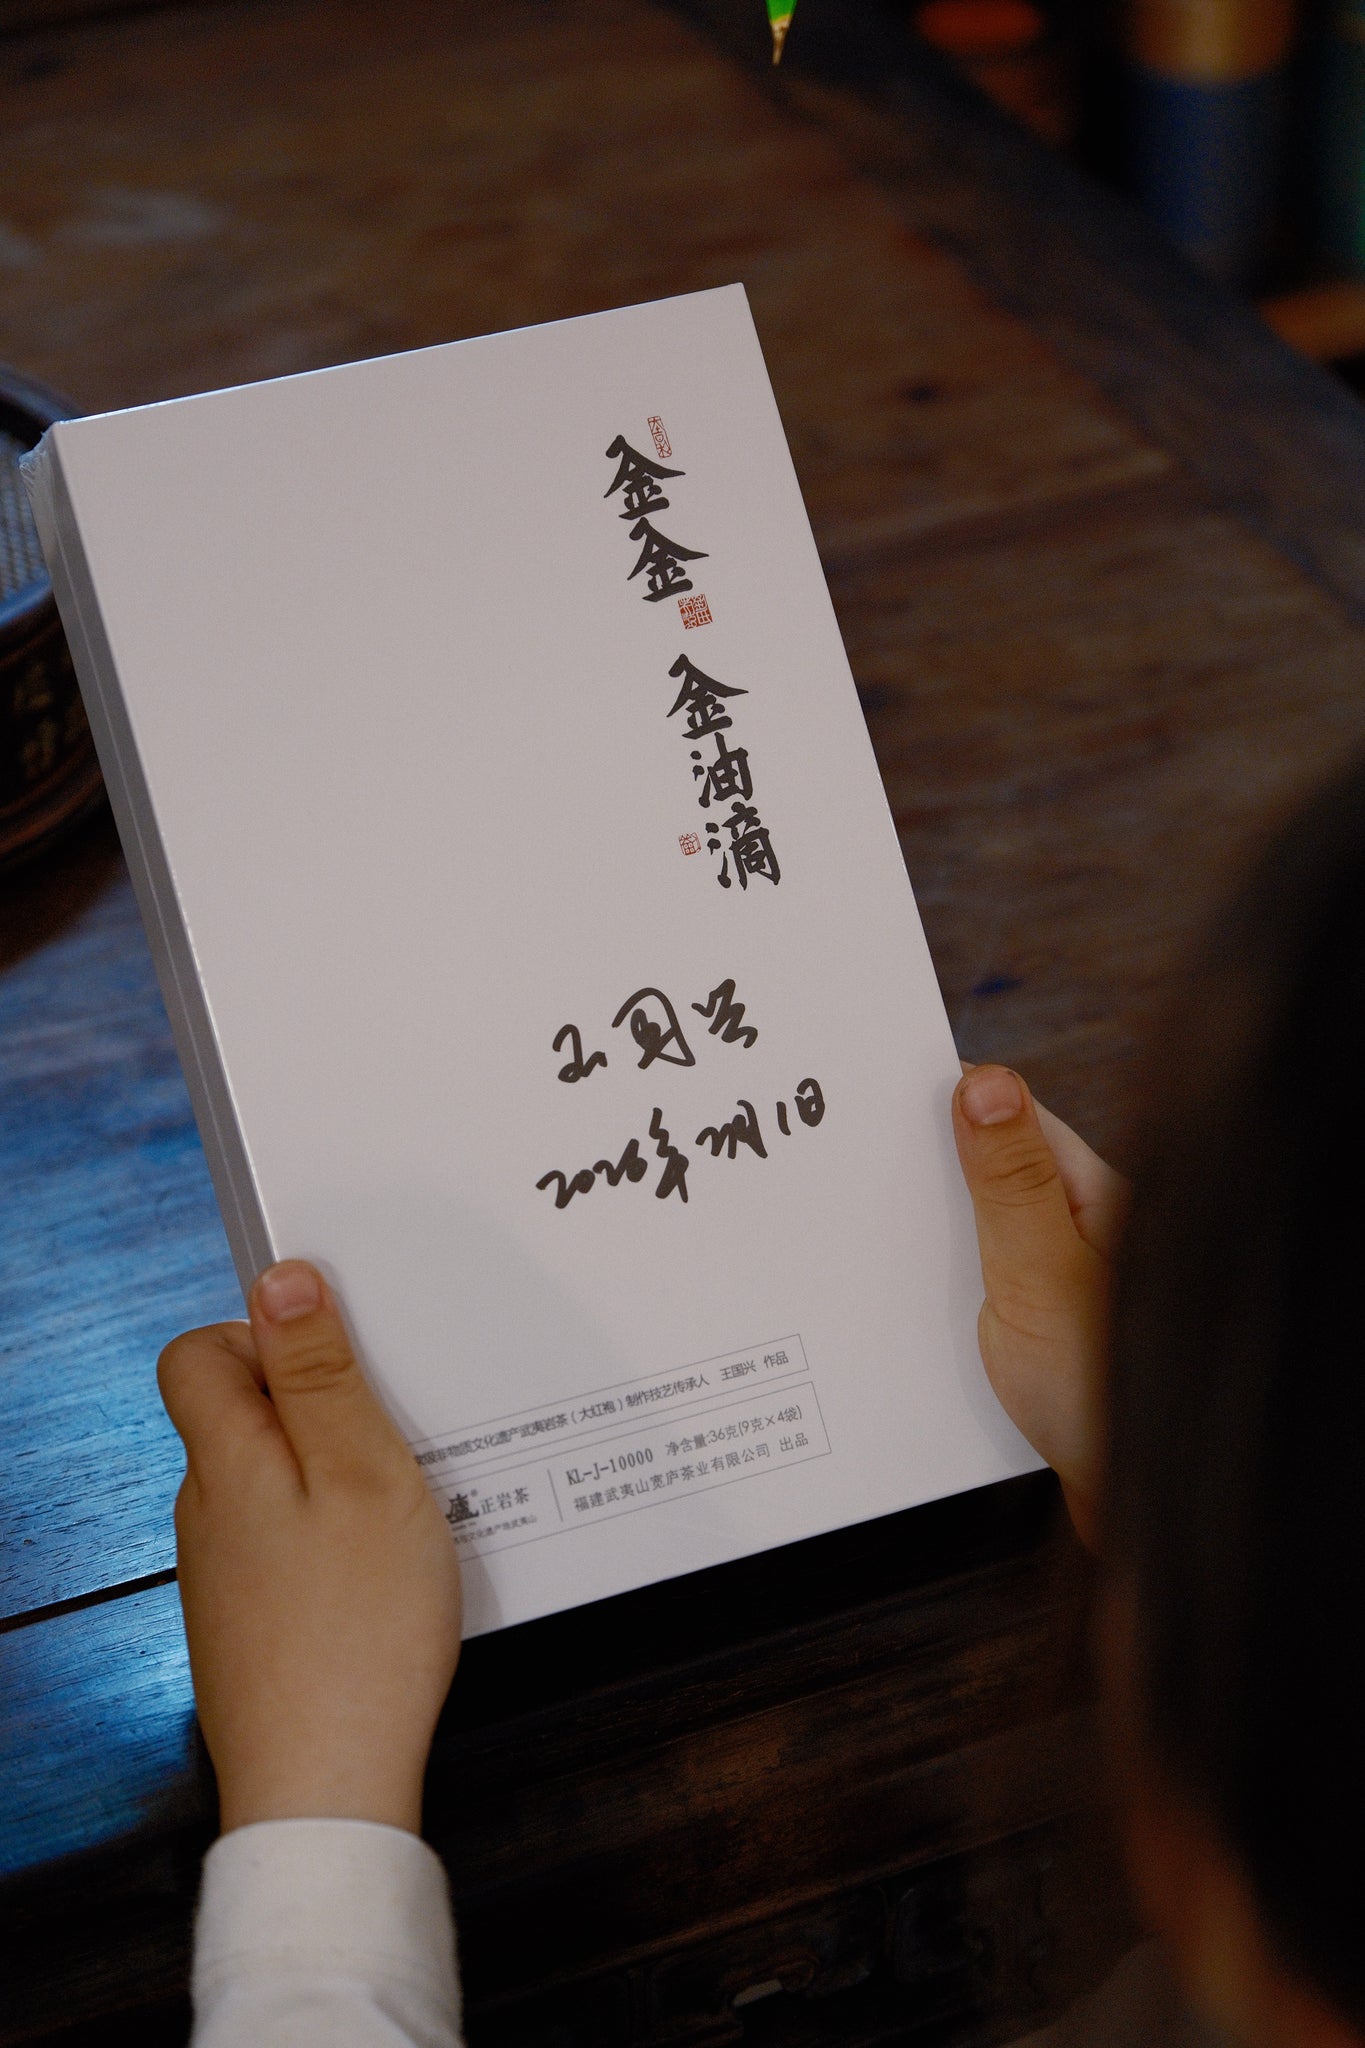 金金
金油滴
王国兴
2026年2月1日
级非物质文化遗产武夷岩茶（大红袍）制作技艺传承人 王国兴 作品
KL-J-10000 净含量:36克(9克×4袋)
正岩茶
福建武夷山宽庐茶业有限公司 出品
文化遗产地武夷山